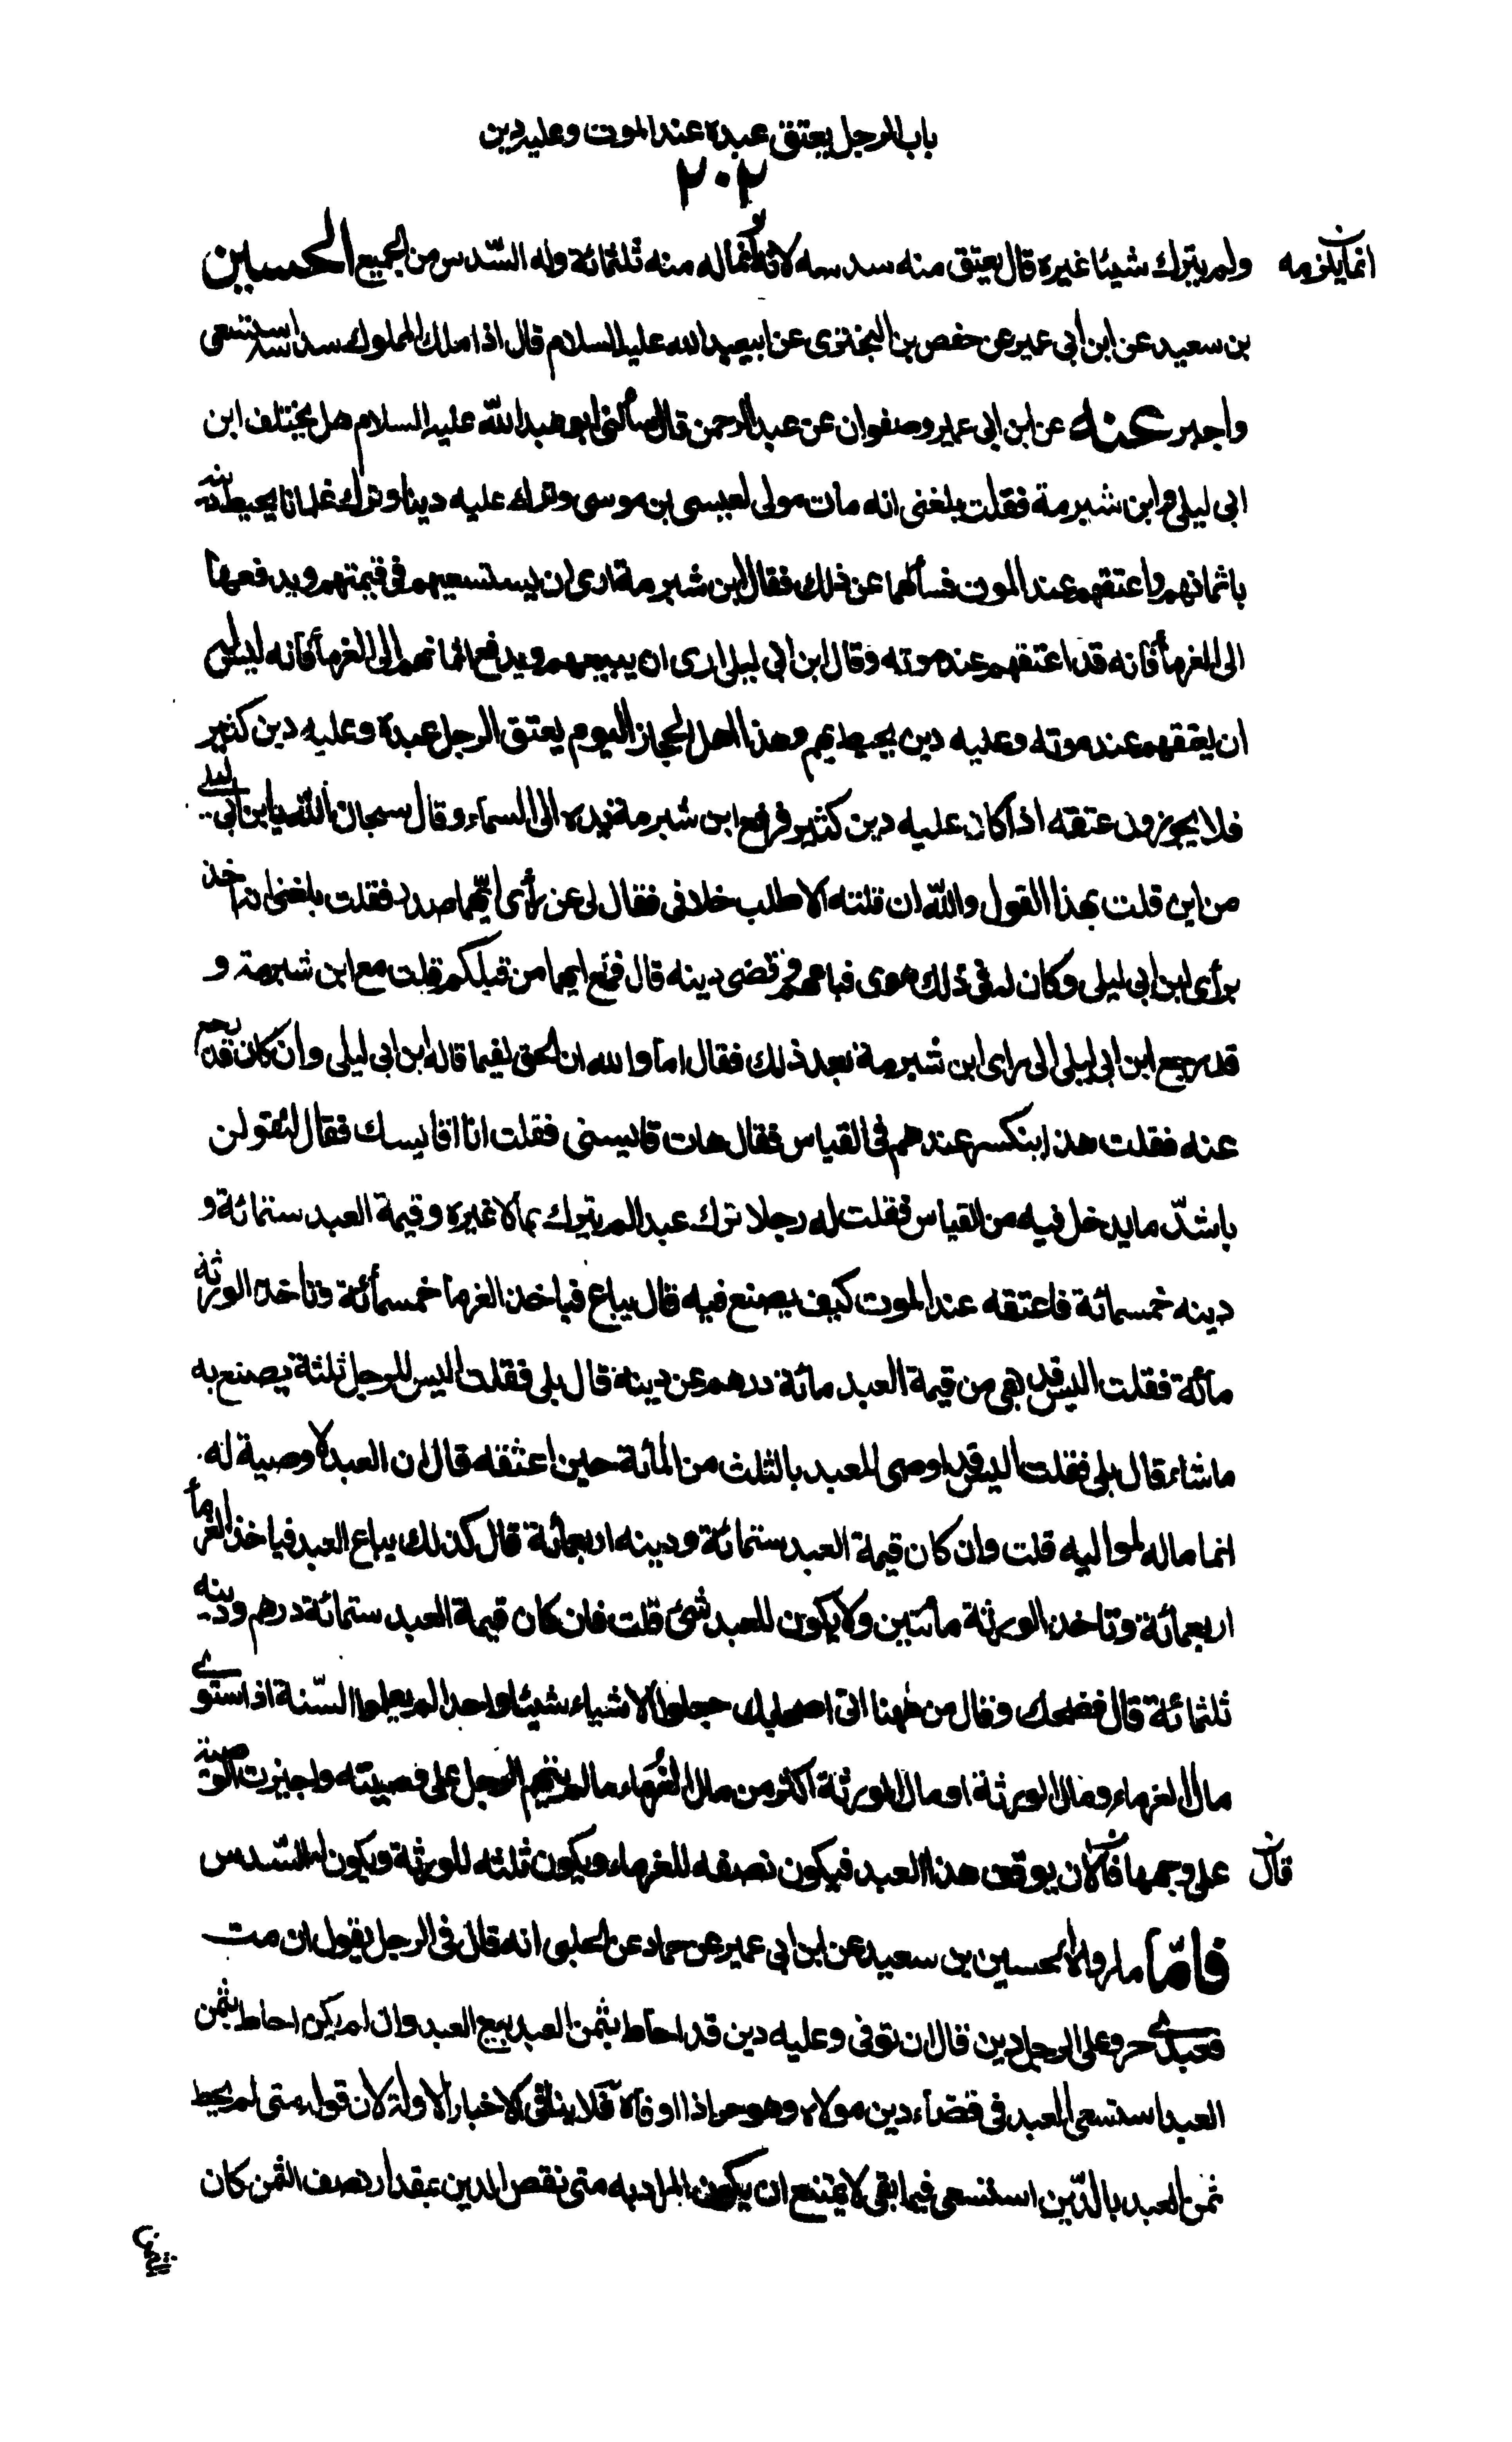 باب الرجل يعتق عبده عند الموت وعليه دين
٢٠٢
ولم يترك شيئا غيره قال يعتق منه سدسه لانه انما له منه ثلثمائة وله السّدس من الجميع الحسين
انما يلزمه
بن سعيد عن ابن أبي عمير عن حفص بن البختري عن ابيعبدالله عليه السلام قال اذا ملك المملوك سدسه استسعى
واجبر عنه عن ابن ابي عمير وصفوان عن عبد الرحمن قال سألني ابو عبد الله عليه السلام هل يختلف ابن
ابي ليلى وابن شبرمة فقلت بلغني انه مات مولى لعيسى بن موسى وترك عليه دينا وترك غلمانا يحيط دينه
باثمانهم واعتقهم عند الموت فسألهما عن ذلك فقال ابن شبرمة ارى ان يستسعيهم في قيمتهم ويدفعها
الى الغرمأ فانه قد اعتقهم عند موته وقال ابن ابي ليلى ارى ان يبيعهم ويدفع اثمانهم الى الغرمأ فانه ليس له
ان يعتقهم عند موته وعليه دين يحيط بهم وهذا اهل الحجاز اليوم يعتق الرجل عبده وعليه دين كثير
فلا يجوزون عتقه اذا كان عليه دين كثير فرفع ابن شبرمة يده الى السماء وقال سبحان الله يا ابن ابي ليلى
من اين قلت بهذا القول والله ان قلته الا طلب خلافي فقال لي عن رأى ايّهما صدر فقلت بلغني انه اخذ
برأى ابن ابي ليلى وكان له في ذلك هوى فباعهم وقضى دينه قال فمع ايهما من قبلكم قلت مع ابن شبرمة و
قد رجع ابن ابي ليلى الى راى ابن شبرمة بعد ذلك فقال اما والله ان الحق لفيما قاله ابن ابي ليلى وان كان قد رجع
عنه فقلت هذا ينكسر عندهم في القياس فقال هات قايسني فقلت انا اقايسك فقال لتقولن
باشدّ ما يدخل فيه من القياس فقلت له رجلا ترك عبدا لم يترك مالا غيره وقيمة العبد ستمائة و
دينه خمسمائة فاعتقه عند الموت كيف يصنع فيه قال يباع فياخذ الغرما خمسمأئة وتاخذ الورثة
مأئة فقلت اليس قد بقي من قيمة العبد مائة درهم عن دينه قال بلى فقلت اليس للرجل ثلثة يصنع به
ما شاء قال بلى فقلت اليس قد اوصى للعبد بالثلث من المائة حين اعتقه قال ان العبد لا وصية له
انما ماله لمواليه قلت وان كان قيمة العبد ستمائة ودينه اربعمائة قال كذلك يباع العبد فياخذ الغرمأ
اربعمائة وتاخذ الورثة مأئتين ولا يكون للعبد شئ قلت فان كان قيمة العبد ستمائة درهم ودينه
ثلثمائة قال فضحك وقال من ههنا اتى اصحابك جعلوا الاشياء شيئا واحدا لم يعلموا السّنة اذا استوى
مال الغرماء ومال الورثة او مال الورثة اكثر من مال الغرماء ما لم يتهم الرجل على وصيته واجيزت الوصية
على وجهها فالان يوقف هذا العبد فيكون نصفه للغرماء ويكون ثلثه للورثة ويكون له السّدس
قال
فامّا ما رواه الحسين بن سعيد عن ابن ابي عمير عن حماد عن الحلبي انه قال في الرجل يقول ان مت
فعبدي حر وعلى الرجل دين قال ان توفى وعليه دين قد احاط بثمن العبد بيع العبد وان لم يكن احاط بثمن
العبد استسعى العبد في قضاء دين مولاه وهو حر اذا اوفاه فلا ينافي الاخبار الاولة لان قوله متى لم يحط
ثمن العبد بالدّين استسعى فيما بقى لا يمتنع ان يكون المراد به متى نقص الدين بمقدار نصف الثمن كان